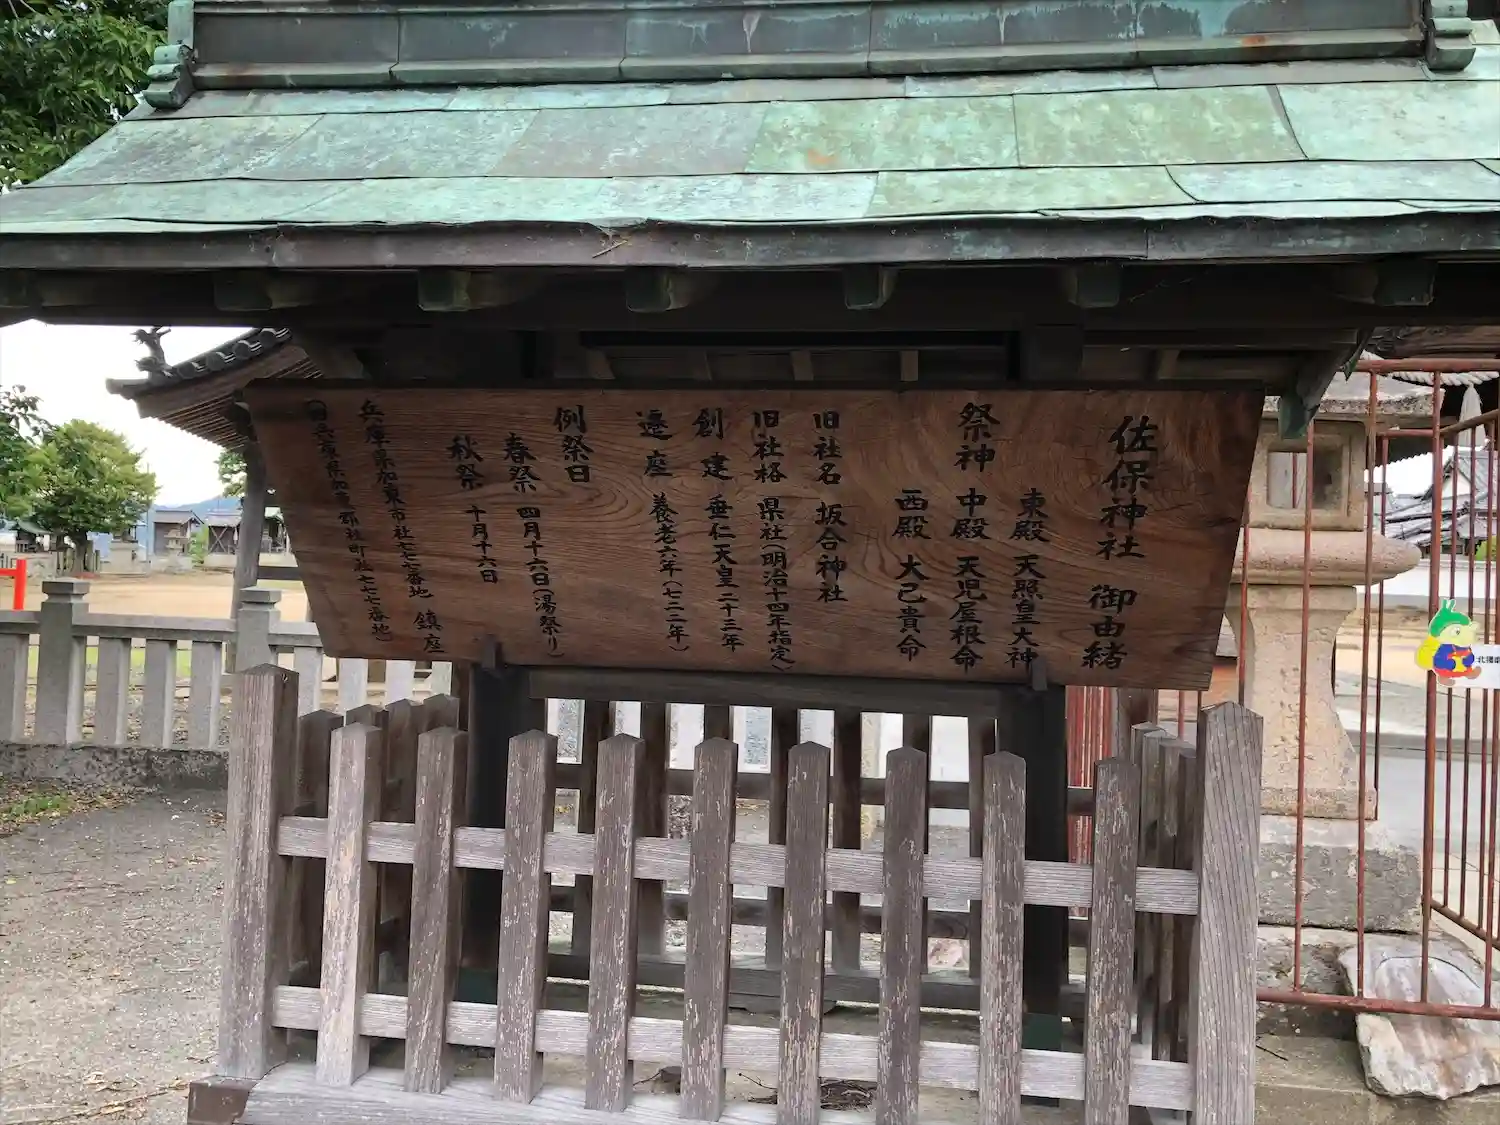 佐保神社 御由緒
祭神
東殿 天照皇大神
中殿 天児屋根命
西殿 大己貴命
旧社名 坂合神社
旧社格 県社(明治十四年指定)
創建 垂仁天皇二十三年
遷座 養老六年(七二二年)
例祭日
春祭 四月十六日(湯祭り)
秋祭 十月十六日
兵庫県加東市社七七七番地 鎮座
兵庫県加東郡社町社七七七番地)
北播磨